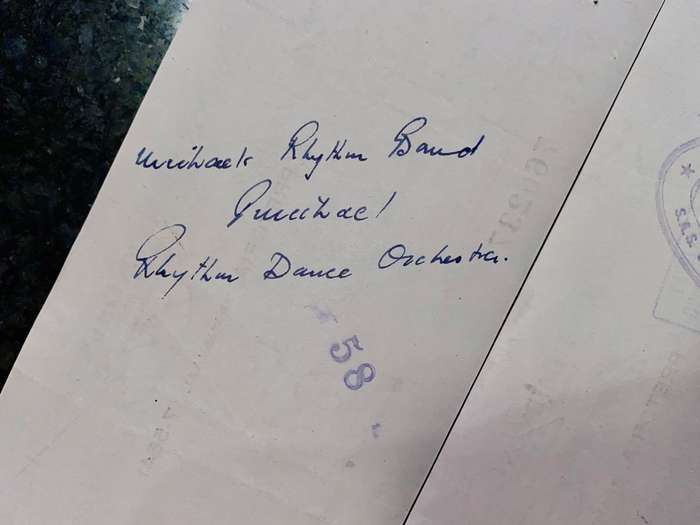 Michael's Rhythm Band
Michael
Rhythm Dance Orchestra.
58
S.A.S.